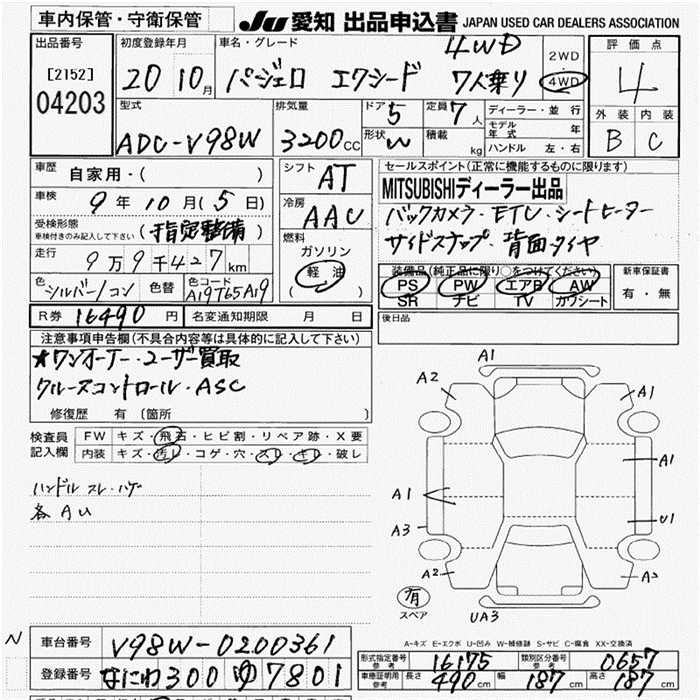 車内保管・守衛保管
JU 愛知 出品申込書 JAPAN USED CAR DEALERS ASSOCIATION
出品番号
[2152]
04203
初度登録年月
20 10月
車名・グレード
4WD
パジェロ エクシード 7人乗り
2WD
4WD
評価点
4
外装 内装
B C
型式
ADC-V98W
排気量
3200cc
ドア 5
形状 W
定員 7人
積載 kg
ディーラー・並行
モデル年式 年
ハンドル 左・右
車歴
自家用・( )
車検
9年10月(5日)
受検形態
車検付きのみ記入して下さい
(指定整備)
走行
9万9千427km
色 シルバー/コン
色替
色コード
A19T65A19
シフト AT
冷房 AAC
燃料
ガソリン
軽油
( )
セールスポイント(正常に機能するものに限ります)
MITSUBISHIディーラー出品
バックカメラ・ETC・シートヒーター
サイドステップ・背面タイヤ
装備品(純正品に限り○をつけてください)
PS PW エアB AW
SR ナビ TV カワシート
新車保証書
有・無
R券 16490円
名変通知期限 月 日
後日品
注意事項申告欄(不具合内容等は具体的に記入して下さい)
★ワンオーナー・ユーザー買取
クルーズコントロール・ASC
修復歴 有(箇所 )
検査員記入欄
FW キズ・飛石・ヒビ割・リペア跡・X要
内装 キズ・汚れ・コゲ・穴・スレ・キレ・破し
ハンドル スレ・ハゲ
各AU
A1
A2
A1
A1
A1
U1
A3
A2
A2
有
スペア
UA3
A-キズ E-エクボ U-凹み W-補修跡 S-サビ C-腐食 XX-交換済
N
車台番号
V98W-0200361
登録番号
なにわ300ゆ7801
形式指定番号
参考
16175
類別区分番号
参考
0657
車庫証明用
参考
長さ 490cm
幅 187cm
高さ 187cm